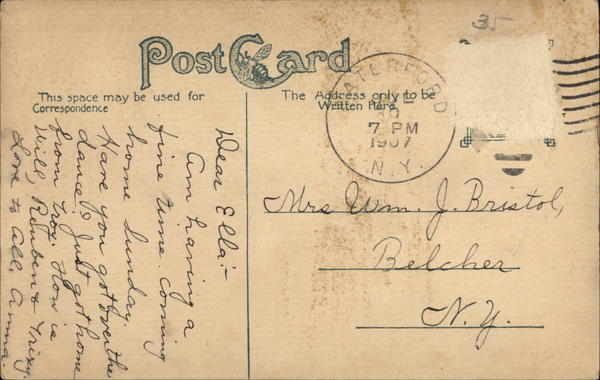 35
Post Card
This space may be used for
Correspondence
The Address only to be
Written Here
WATERFORD
30
7 PM
1907
N.Y.
Dear Ella:-
Am having a
fine time. Coming
home Sunday.
Have you got over the
dance? Just got home
from Troy. How is
Will, Reuben & Trixy.
Love to all, Anna.
Mrs Wm. J. Bristol,
Belcher
N.Y.